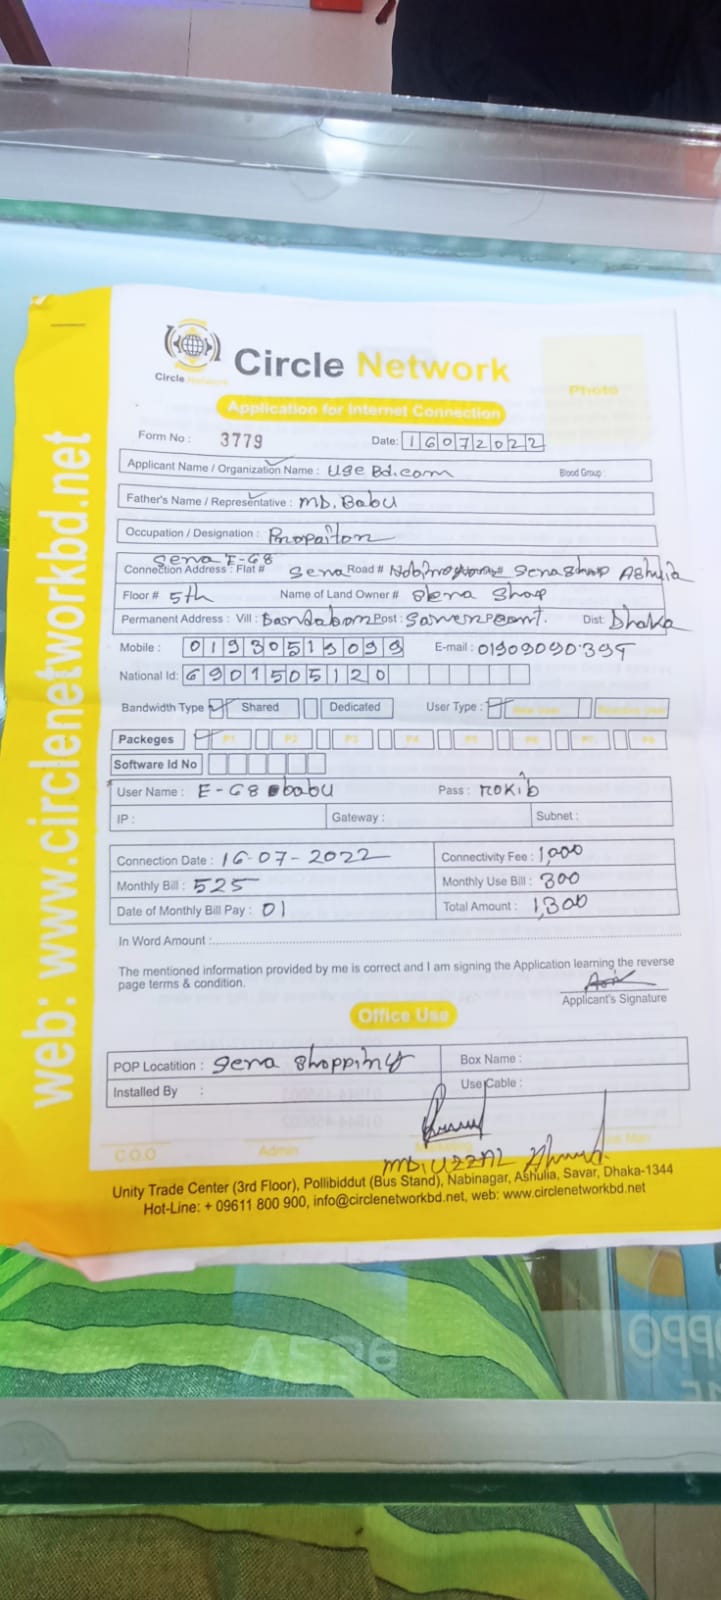 web: www.circlenetworkbd.net
Circle Network
Circle Network
Photo
Application for Internet Connection
Form No : 3779 Date: 16072022
Applicant Name / Organization Name : Uge Bd.com Blood Group :
Father's Name / Representative : MD. Babu
Occupation / Designation :
Sena E-68
Connection Address : Flat # Sena Road # Sena Shop Ashulia
Floor # 5th Name of Land Owner # Sena Shop
Permanent Address : Vill : Post : Dist: Dhaka
Mobile : E-mail : 01909090399
National Id: 6901505120
Bandwidth Type Shared Dedicated User Type :
Packeges P1 P2 P3 P4 P5 P6 P7 P8
Software Id No
User Name : E-G8 babu Pass : rokib
IP : Gateway : Subnet :
Connection Date : 16-07-2022 Connectivity Fee : 1,000
Monthly Bill : 525 Monthly Use Bill : 300
Date of Monthly Bill Pay : 01 Total Amount : 1,300
In Word Amount :
The mentioned information provided by me is correct and I am signing the Application learning the reverse
page terms & condition.
Applicant's Signature
Office Use
POP Locatition : Sena Shopping Box Name :
Installed By : Use Cable :
C.O.O Admin
MD. UZZAL Ahmed
Unity Trade Center (3rd Floor), Pollibiddut (Bus Stand), Nabinagar, Ashulia, Savar, Dhaka-1344
Hot-Line: + 09611 800 900, info@circlenetworkbd.net, web: www.circlenetworkbd.net
OPPO
A53e